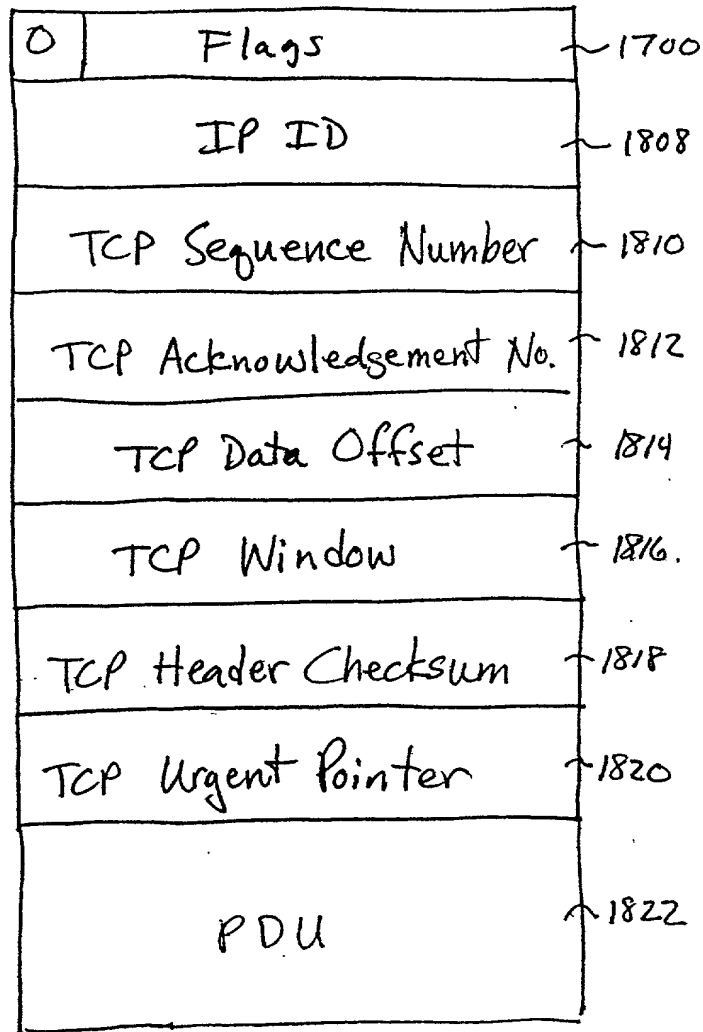 0 Flags 1700
IP ID 1808
TCP Sequence Number 1810
TCP Acknowledgement No. 1812
TCP Data Offset 1814
TCP Window 1816.
TCP Header Checksum 1818
TCP Urgent Pointer 1820
PDU 1822